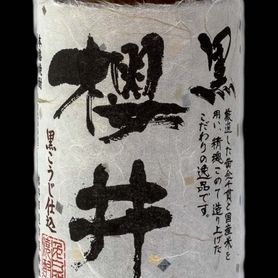 黒
櫻井
厳選した黄金千貫と国産米を
用い、精魂こめて造り上げた
こだわりの逸品です。
本格焼酎
黒こうじ仕込